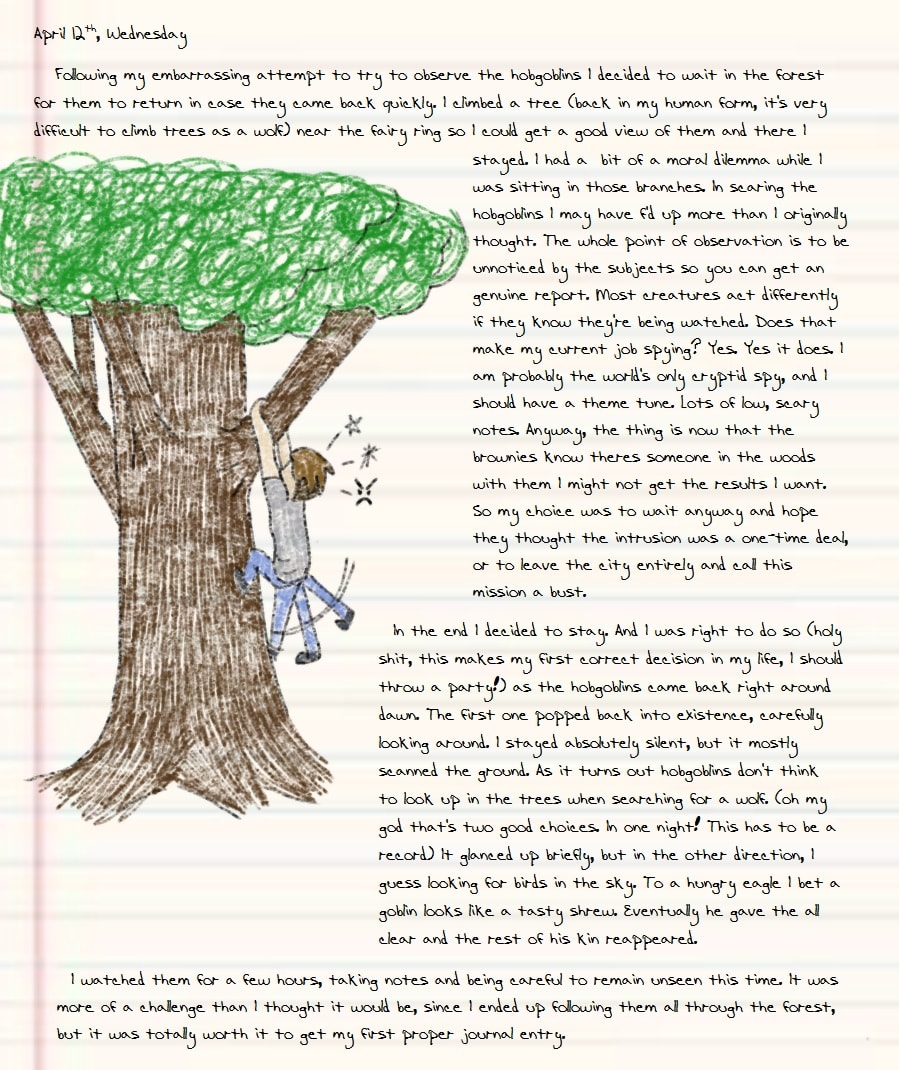 April 12th, Wednesday
Following my embarrassing attempt to try to observe the hobgoblins I decided to wait in the forest
for them to return in case they came back quickly. I climbed a tree (back in my human form, it's very
difficult to climb trees as a wolf) near the fairy ring so I could get a good view of them and there I
stayed. I had a bit of a moral dilemma while I
was sitting in those branches. In scaring the
hobgoblins I may have f'd up more than I originally
thought. The whole point of observation is to be
unnoticed by the subjects so you can get an
genuine report. Most creatures act differently
if they know they're being watched. Does that
make my current job spying? Yes. Yes it does. I
am probably the world's only cryptid spy, and I
should have a theme tune. Lots of low, scary
notes. Anyway, the thing is now that the
brownies know theres someone in the woods
with them I might not get the results I want.
So my choice was to wait anyway and hope
they thought the intrusion was a one-time deal,
or to leave the city entirely and call this
mission a bust.
In the end I decided to stay. And I was right to do so (holy
shit, this makes my first correct decision in my life, I should
throw a party!) as the hobgoblins came back right around
dawn. The first one popped back into existence, carefully
looking around. I stayed absolutely silent, but it mostly
scanned the ground. As it turns out hobgoblins don't think
to look up in the trees when searching for a wolf. (oh my
god that's two good choices. In one night! This has to be a
record) It glanced up briefly, but in the other direction, I
guess looking for birds in the sky. To a hungry eagle I bet a
goblin looks like a tasty shrew. Eventually he gave the all
clear and the rest of his kin reappeared.
I watched them for a few hours, taking notes and being careful to remain unseen this time. It was
more of a challenge than I thought it would be, since I ended up following them all through the forest,
but it was totally worth it to get my first proper journal entry.